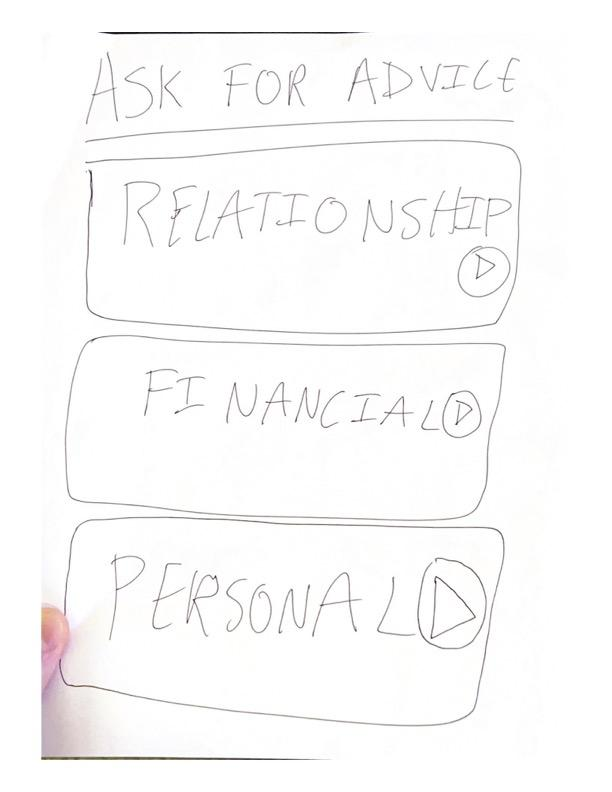 ASK FOR ADVICE
RELATIONSHIP
FINANCIAL
PERSONAL